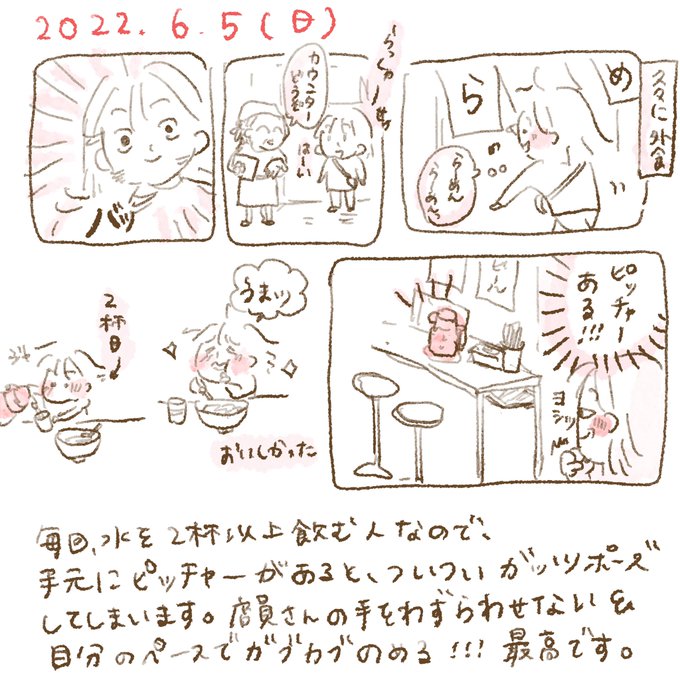 2022.6.5(日)
久々に外食
らめ
らーめん
らーめん
らっしゃーせ
カウンター
どうぞ
はーい
バッ
ピッチャー
ある!!!
ヨシッ
うまッ
おいしかった
2杯目
毎回、水を2杯以上飲む人なので、
手元にピッチャーがあると、ついついガッツポーズ
してしまいます。店員さんの手をわずらわせない&
自分のペースでガブガブのめる!!!最高です。